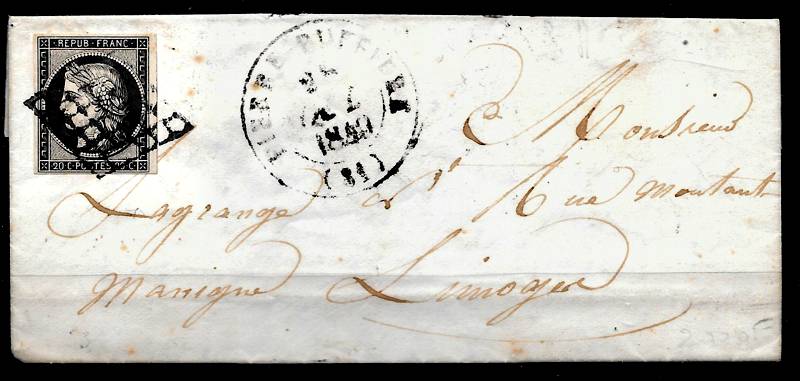 REPUB. FRANC.
20 C. POSTES 20 C.
PIERRE-BUFFIERE
1849
Monsieur
Lagrange Rue montant
manigne Limoges